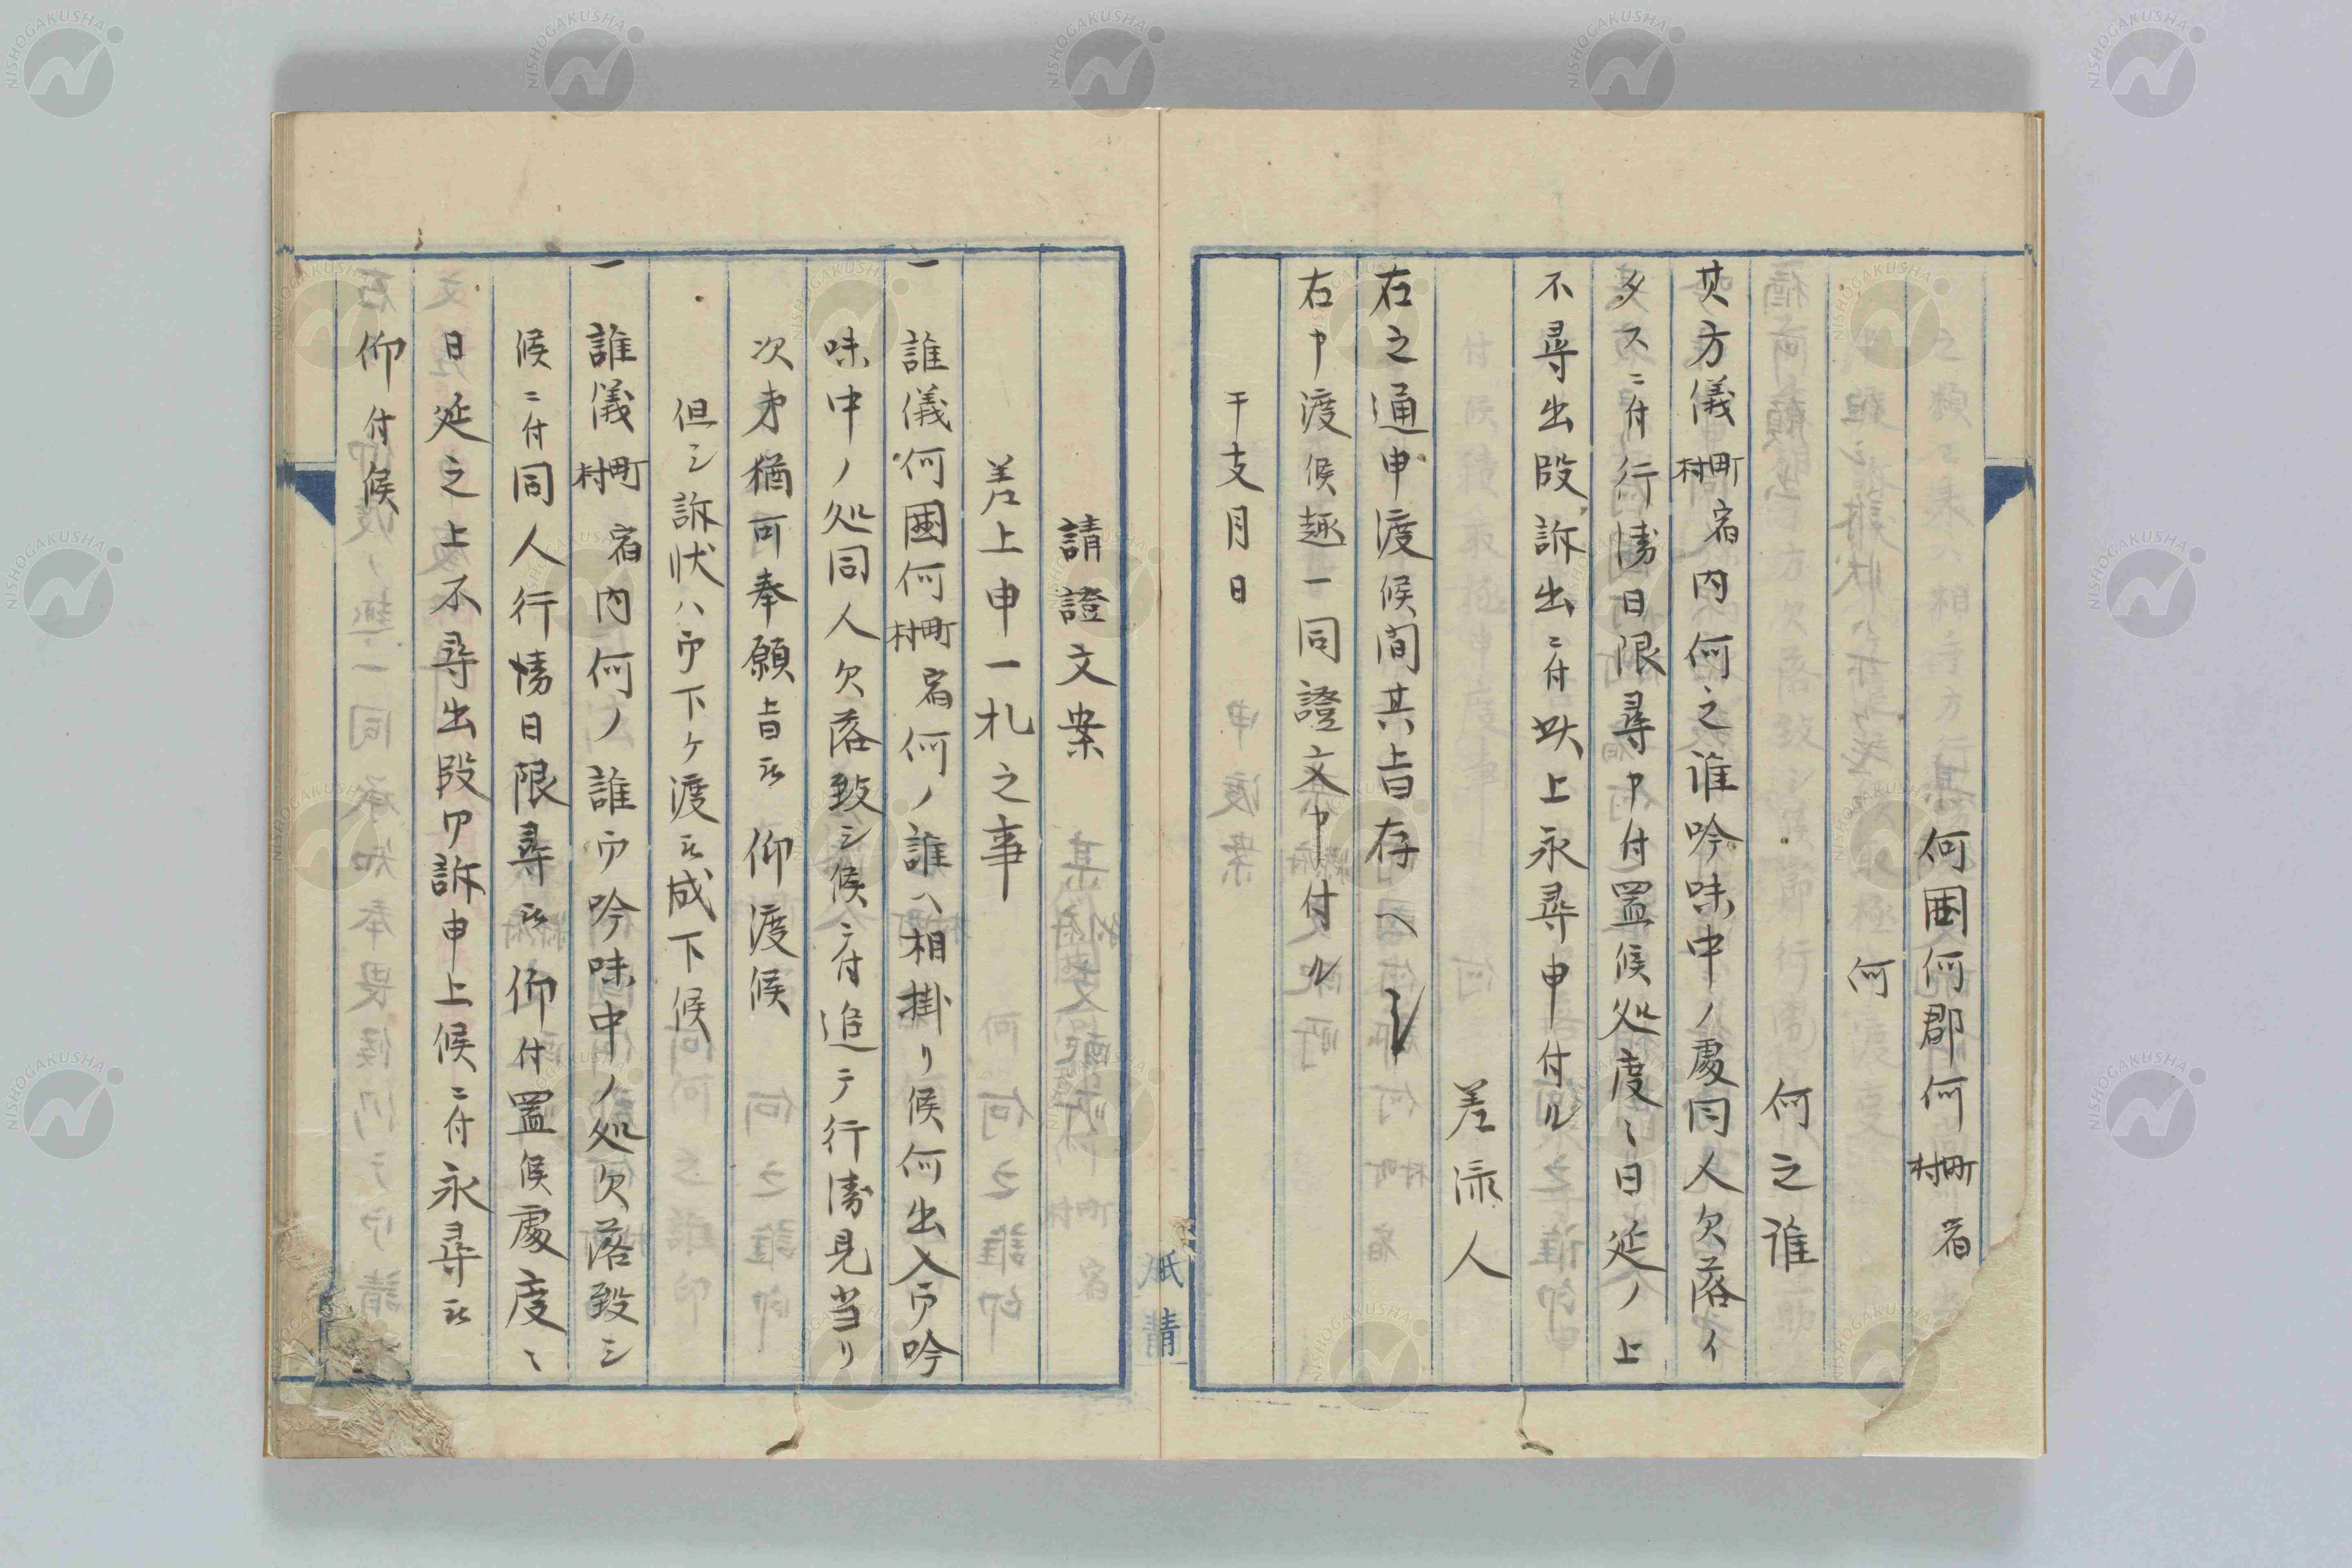 何国何郡何町村宿
何
何之誰
其方儀町村宿内何之誰吟味中ノ處同人欠落イ
タスニ付行衛日限尋申付置候処度々日延ノ上
不尋出段訴出ニ付此上永尋申付ル
差添人
右之通申渡候間其旨存ヘシ
右申渡候趣一同證文申付ル
干支月日
請證文案
差上申一札之事
一誰儀何國何町村宿何ノ誰ヘ相掛リ候何出入御吟
味中ノ処同人欠落致シ候ニ付追テ行衛見当リ
次第猶可奉願旨被仰渡候
但シ訴状ハ御下ケ渡被成下候
一誰儀町村宿内何ノ誰御吟味中ノ処欠落致シ
候ニ付同人行衛日限尋被仰付置候處度々
日延之上不尋出段御訴申上候ニ付永尋被
仰付候
NISHOGAKUSHA